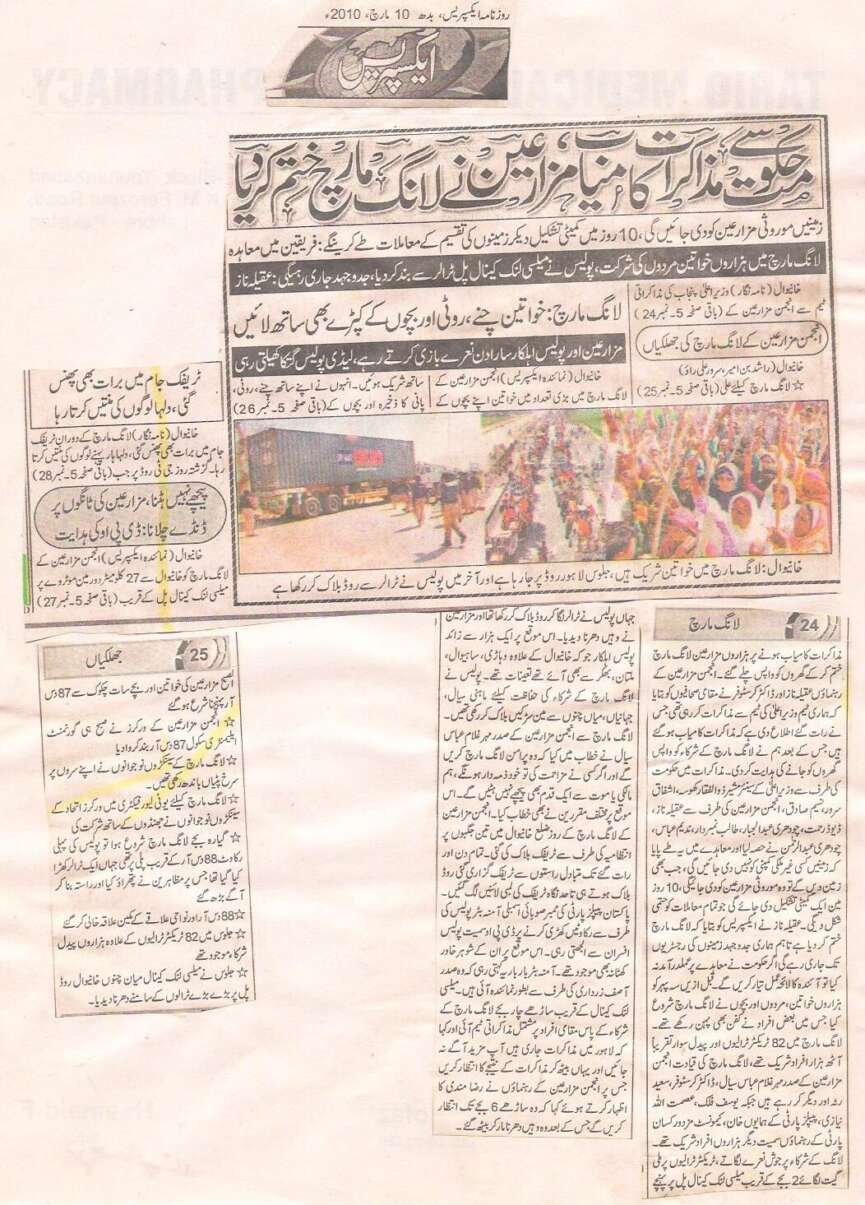 روزنامہ ایکسپریس، بدھ 10 مارچ، 2010ء
ایکسپریس
حکومت سے مذاکرات کامیاب، مزارعین نے لانگ مارچ ختم کر دیا
زمینیں موروثی مزارعین کو دی جائیں گی، 10 روز میں کمیٹی تشکیل دیکر زمینوں کی تقسیم کے معاملات طے کرینگے: فریقین میں معاہدہ
لانگ مارچ میں ہزاروں خواتین مردوں کی شرکت، پولیس نے میلسی لنک کینال پل ٹرالر سے بند کر دیا، جدوجہد جاری رہیگی: عقیلہ ناز
خانیوال (نامہ نگار) وزیراعلیٰ پنجاب کی مذاکراتی
ٹیم سے انجمن مزارعین کے (باقی صفحہ 5۔نمبر 24)
انجمن مزارعین کے لانگ مارچ کی جھلکیاں
خانیوال (راشد بن امیر، سرور علی راؤ)
☆ لانگ مارچ کیلئے علی (باقی صفحہ 5۔نمبر 25)
لانگ مارچ: خواتین چنے، روٹی اور بچوں کے کپڑے بھی ساتھ لائیں
مزارعین اور پولیس اہلکار سارا دن نعرے بازی کرتے رہے، لیڈی پولیس گتکا کھیلتی رہی
خانیوال (نمائندہ ایکسپریس) انجمن مزارعین کے
لانگ مارچ میں بڑی تعداد میں خواتین اپنے بچوں کے
ساتھ شریک ہوئیں۔ انہوں نے اپنے ساتھ چنے، روٹی،
پانی کا ذخیرہ اور بچوں کے (باقی صفحہ 5۔نمبر 26)
خانیوال: لانگ مارچ میں خواتین شریک ہیں، جلوس لاہور روڈ پر جا رہا ہے اور آخر میں پولیس نے ٹرالر سے روڈ بلاک کر رکھا ہے
ٹریفک جام میں برات بھی پھنس
گئی، دلہا لوگوں کی منتیں کرتا رہا
خانیوال (نامہ نگار) لانگ مارچ کے دوران ٹریفک
جام میں برات بھی پھنس گئی، دلہا ہار پہنے لوگوں کی منتیں کرتا
رہا۔ گزشتہ روز جی ٹی روڈ پر جب (باقی صفحہ 5۔نمبر 28)
پیچھے نہیں ہٹنا، مزارعین کی ٹانگوں پر
ڈنڈے چلانا: ڈی پی او کی ہدایت
خانیوال (نمائندہ ایکسپریس) انجمن مزارعین کے
لانگ مارچ کو خانیوال سے 27 کلومیٹر دور مین موٹروے پر
میلسی لنک کینال پل کے قریب (باقی صفحہ 5۔نمبر 27)
24 لانگ مارچ
مذاکرات کامیاب ہونے پر ہزاروں مزارعین لانگ مارچ
ختم کر کے گھروں کو واپس چلے گئے۔ انجمن مزارعین کے
رہنماؤں عقیلہ ناز اور ڈاکٹر کرسٹوفر نے مقامی صحافیوں کو بتایا
کہ ہماری ٹیم وزیراعلیٰ کی ٹیم سے مذاکرات کر رہی تھی جس
نے رات گئے اطلاع دی ہے کہ مذاکرات کامیاب ہو گئے
ہیں جس کے بعد ہم نے لانگ مارچ کے شرکاء کو واپس
گھروں کو جانے کی ہدایت کر دی۔ مذاکرات میں حکومت
کی طرف سے وزیراعلیٰ کے سینئر مشیر ذوالفقار کھوسہ، اشفاق
سرور، نسیم صادق، انجمن مزارعین کی طرف سے عقیلہ ناز،
ڈیوڈ رحمت، چودھری عبدالجبار، طالب نمبردار، ندیم عباس،
چودھری عبدالرحمن نے حصہ لیا اور معاہدے میں یہ طے پایا
کہ زمینیں کسی غیر ملکی کمپنی کو نہیں دی جائیں گی، جب بھی
زمین دیں گے تو وہ موروثی مزارعین کو دی جائیگی، 10 روز
میں ایک کمیٹی تشکیل دی جائے گی جو تمام معاملات کو حتمی
شکل دیگی۔ عقیلہ ناز نے ایکسپریس کو بتایا کہ لانگ مارچ
ختم کر دیا ہے تاہم ہماری جدوجہد زمینوں کی رجسٹریوں
تک جاری رہے گی اگر حکومت نے معاہدے پر عملدرآمد نہ
کیا تو آئندہ کا لائحہ عمل تیار کریں گے۔ قبل ازیں سہ پہر کو
ہزاروں خواتین، مردوں اور بچوں نے لانگ مارچ شروع
کیا جس میں بعض افراد نے کفن بھی پہن رکھے تھے۔
لانگ مارچ میں 82 ٹریکٹر ٹرالیوں اور پیدل سوار تقریباً
آٹھ ہزار افراد شریک تھے، لانگ مارچ کی قیادت انجمن
مزارعین کے صدر مہر غلام عباس سیال، ڈاکٹر کرسٹوفر، سعید
اور دیگر کر رہے ہیں جبکہ یوسف فلک، عصمت اللہ
نیازی، پیپلز پارٹی کے ہمایوں خان، کمیونسٹ مزدور کسان
پارٹی کے رہنماؤں سمیت دیگر ہزاروں افراد شریک تھے۔
لانگ کے شرکاء پرجوش نعرے لگاتے، ٹریکٹر ٹرالیوں پر ملی
گیت لگائے 2 بجے کے قریب میلسی لنک کینال پل پر پہنچے
جہاں پولیس نے ٹرالر لگا کر روڈ بلاک کر رکھا تھا اور مزارعین
نے وہیں دھرنا دیدیا۔ اس موقع پر ایک ہزار سے زائد
پولیس اہلکار جو کہ خانیوال کے علاوہ وہاڑی، ساہیوال،
ملتان، بھکر سے بھی آئے تھے تعینات تھے۔ پولیس نے
لانگ مارچ کے شرکاء کی حفاظت کیلئے ماہنی سیال،
جہانیاں، میاں چنوں سے مین سڑکیں بلاک کر رکھی تھیں۔
لانگ مارچ سے انجمن مزارعین کے صدر مہر غلام عباس
سیال نے خطاب میں کہا کہ وہ پرامن لانگ مارچ کریں
گے اور اگر کسی نے مزاحمت کی تو خود ذمہ دار ہونگے، ہم
مالکی یا موت سے ایک قدم بھی پیچھے نہیں ہٹیں گے۔ اس
موقع پر مختلف مقررین نے بھی خطاب کیا۔ انجمن مزارعین
کے لانگ مارچ کے روز ضلع خانیوال میں تین جگہوں پر
انتظامیہ کی طرف سے ٹریفک بلاک کی گئی۔ تمام دن اور
رات گئے تک متبادل راستوں سے ٹریفک گزاری گئی روڈ
بلاک ہوتے ہی تاحد نگاہ ٹریفک کی لمبی لائنیں لگ گئیں۔
پاکستان پیپلز پارٹی کی ممبر صوبائی اسمبلی آمنہ بٹر پولیس کی
طرف سے رکاوٹیں کھڑی کرنے پر ڈی پی او سمیت پولیس
افسران سے الجھتی رہی۔ اس موقع پر ان کے شوہر خاور
کھٹانہ بھی موجود تھے۔ آمنہ بٹر بار بار یہ کہتی رہی کہ وہ صدر
آصف زرداری کی طرف سے بطور نمائندہ آئی ہیں۔ میلسی
لنک کینال کے قریب ساڑھے چار بجے لانگ مارچ کے
شرکاء کے پاس مقامی افراد پر مشتمل مذاکراتی ٹیم آئی اور کہا
کہ لاہور میں مذاکرات جاری ہیں آپ مزید آگے نہ
جائیں اور یہاں بیٹھ کر مذاکرات کے نتیجے کا انتظار کریں
جس پر انجمن مزارعین کے رہنماؤں نے رضا مندی کا
اظہار کرتے ہوئے کہا کہ وہ ساڑھے 6 بجے تک انتظار
کریں گے جس کے بعد وہ وہیں دھرنا مار کر بیٹھ گئے۔
25 جھلکیاں
الصبح مزارعین کی خواتین اور بچے سات چکوک سے 87 دس
آر پہنچنا شروع ہو گئے
☆ انجمن مزارعین کے ورکرز نے صبح ہی گورنمنٹ
ایلیمنٹری سکول 87 دس آر بند کروا دیا
☆ لانگ مارچ کے سینکڑوں نوجوانوں نے اپنے سروں پر
سرخ پٹیاں باندھ رکھی تھیں۔
☆ لانگ مارچ کیلئے یونی لیور فیکٹری میں ورکرز اتحاد کے
سینکڑوں نوجوانوں نے جھنڈوں کے ساتھ شرکت کی
☆ گیارہ بجے لانگ مارچ شروع ہوا تو پولیس کی پہلی
رکاوٹ 88 دس آر کے قریب پلی پر تھی جہاں ایک ٹرالر کھڑا
کیا گیا تھا جس پر مظاہرین نے پتھراؤ کیا اور راستہ بنا کر
آگے بڑھ گئے
☆ 88 دس آر اور نواحی علاقے کے مکین علاقہ خالی کر گئے
☆ جلوس میں 82 ٹریکٹر ٹرالیوں کے علاوہ ہزاروں پیدل
شرکاء موجود تھے
☆ جلوس نے میلسی لنک کینال میاں چنوں خانیوال روڈ
پل پر بڑے بڑے ٹرالوں کے سامنے دھرنا دیدیا۔